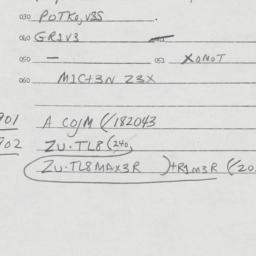 030 POTKO, V3S
040 GR1V3
050 — 051 XOMOT
060 M1C+3N Z3X
901 A COJM (/182043
902 ZU·TL8 (240,
ZU·TL8MAX3R )+R1M3R (/20